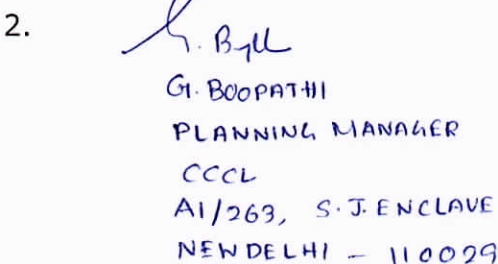 2.
G. BOOPATHI
PLANNING MANAGER
CCCL
A1/263, S.J. ENCLAVE
NEW DELHI - 110029